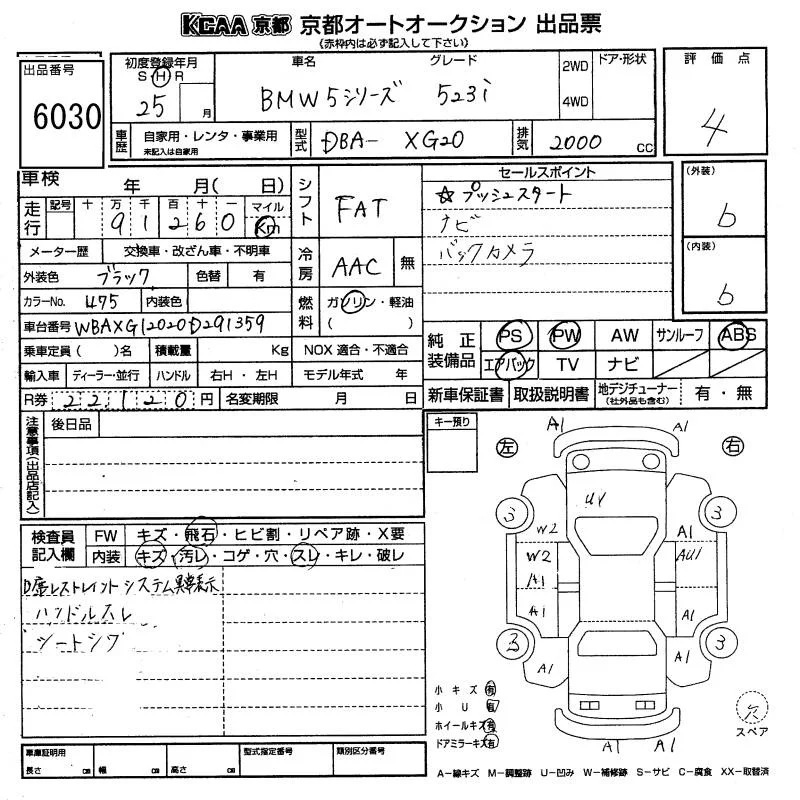 KCAA 京都 京都オートオークション 出品票
(赤枠内は必ず記入して下さい)
出品番号
6030
初度登録年月
S H R
25 月
車名 グレード
BMW 5シリーズ 523i
2WD
4WD
ドア・形状
評価点
4
車歴
自家用・レンタ・事業用
未記入は自家用
型式
DBA- XG20
排気
2000 CC
車検 年 月( 日)
走行
記号 十 万 千 百 十 一 マイル
91260 Km
メーター歴 交換車・改ざん車・不明車
外装色 ブラック 色替 有
カラーNo. 475 内装色
車台番号 WBAXG12020D291359
乗車定員( )名 積載量 Kg
輸入車 ディーラー・並行 ハンドル 右H・左H
R券 22120円 名変期限 月 日
シフト
FAT
冷房
AAC 無
燃料
ガソリン・軽油
( )
NOX 適合・不適合
モデル年式 年
セールスポイント
☆プッシュスタート
ナビ
バックカメラ
(外装)
b
(内装)
b
純正装備品
PS PW AW サンルーフ ABS
エアバック TV ナビ
新車保証書 取扱説明書 地デジチューナー
(社外品も含む)
有・無
注意事項(出品店記入)
後日品
キー預り
検査員記入欄
FW キズ・飛石・ヒビ割・リペア跡・X要
内装 キズ・汚レ・コゲ・穴・スレ・キレ・破レ
D席レストレイントシステム異常表示
ハンドルスレ
シートシワ
左 右
A1 A1
U1
3 3
W2 A1
W2 AU1
A1
A1 A1
3 3
A1 A1
A1 A1
小キズ 有
小U 有
ホイールキズ 有
ドアミラーキズ 有
欠
スペア
車庫証明用
長さ cm 幅 cm 高さ cm
型式指定番号
類別区分番号
A-線キズ M-調整跡 U-凹み W-補修跡 S-サビ C-腐食 XX-取替済